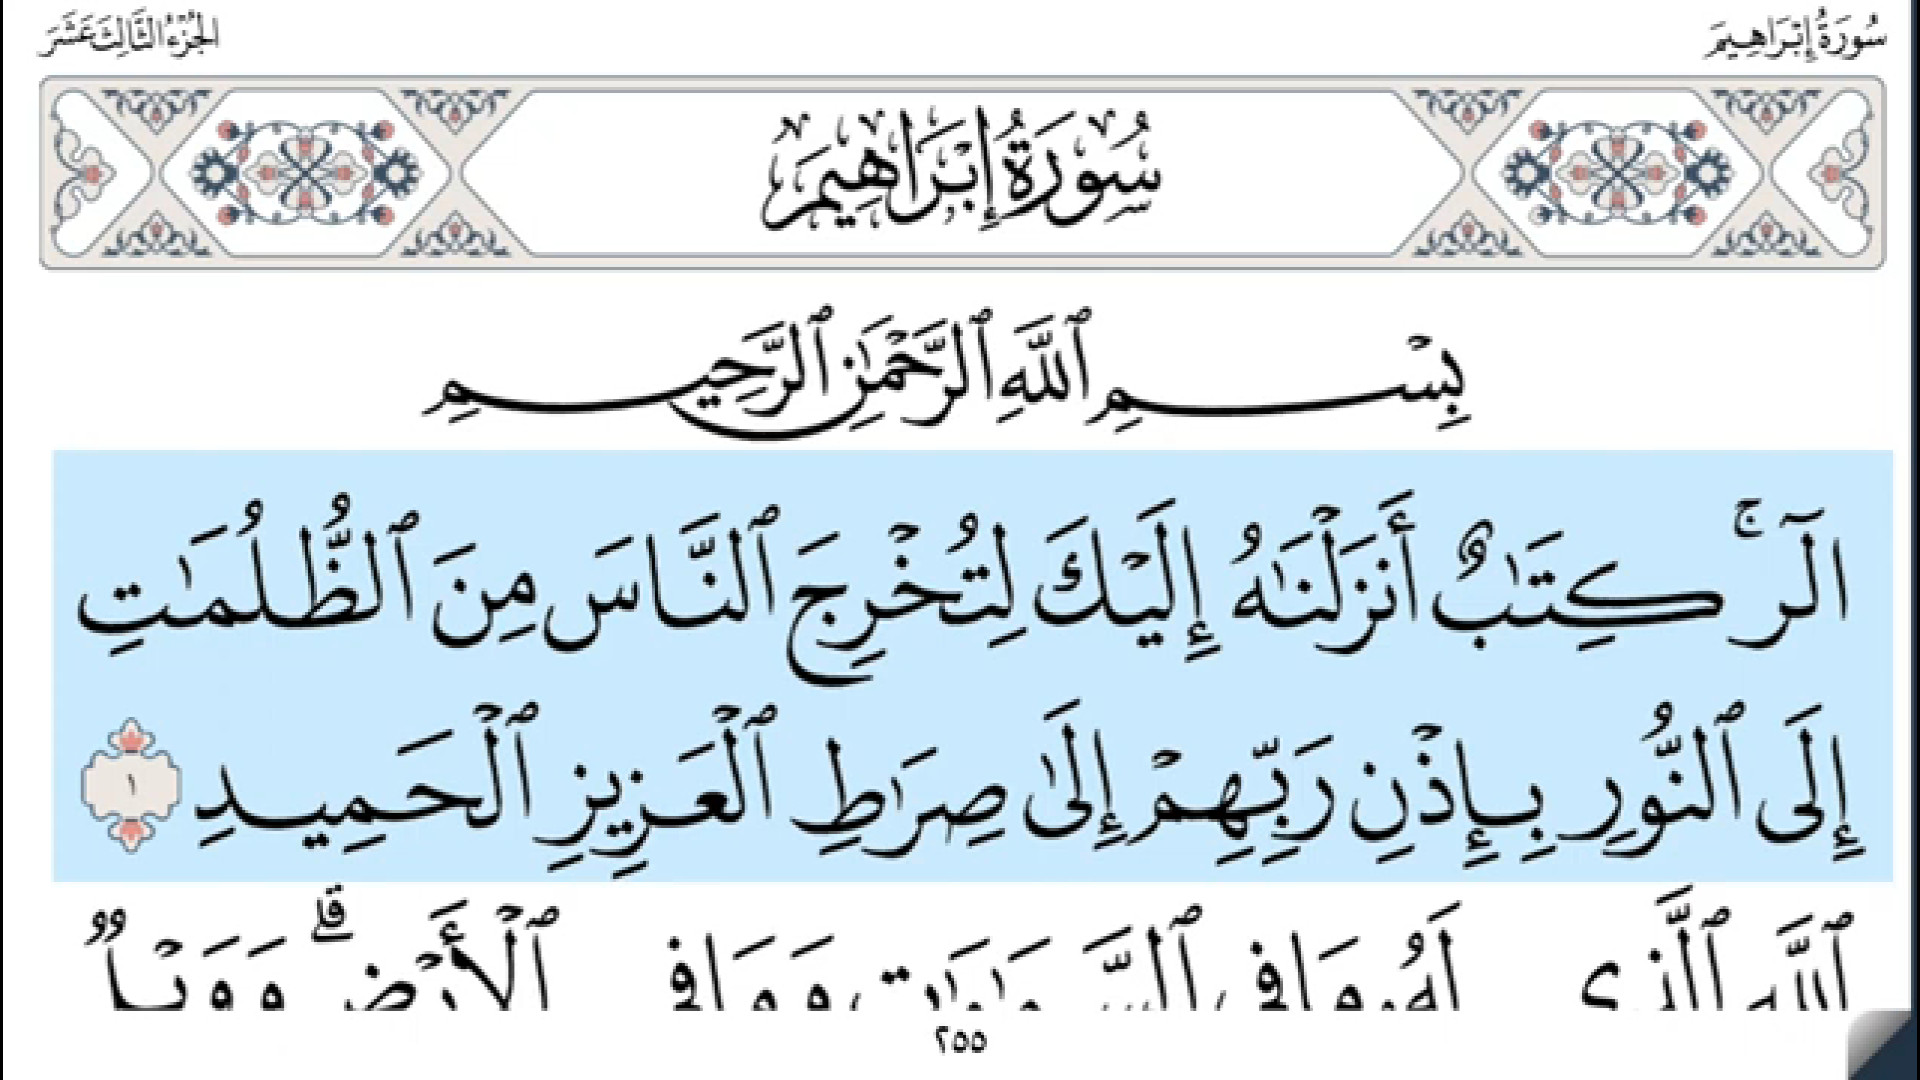 سُورَةُ إِبْرَاهِيمَ
الجُزْءُ الثَّالِثَ عَشَرَ
سُورَةُ إِبْرَاهِيمَ
بِسْمِ ٱللَّهِ ٱلرَّحْمَٰنِ ٱلرَّحِيمِ
الٓرۚ كِتَٰبٌ أَنزَلْنَٰهُ إِلَيْكَ لِتُخْرِجَ ٱلنَّاسَ مِنَ ٱلظُّلُمَٰتِ
إِلَى ٱلنُّورِ بِإِذْنِ رَبِّهِمْ إِلَىٰ صِرَٰطِ ٱلْعَزِيزِ ٱلْحَمِيدِ ١
ٱللَّهِ ٱلَّذِي لَهُۥ مَا فِي ٱلسَّمَٰوَٰتِ وَمَا فِي ٱلْأَرْضِۗ وَوَيْلٌ
٢٥٥